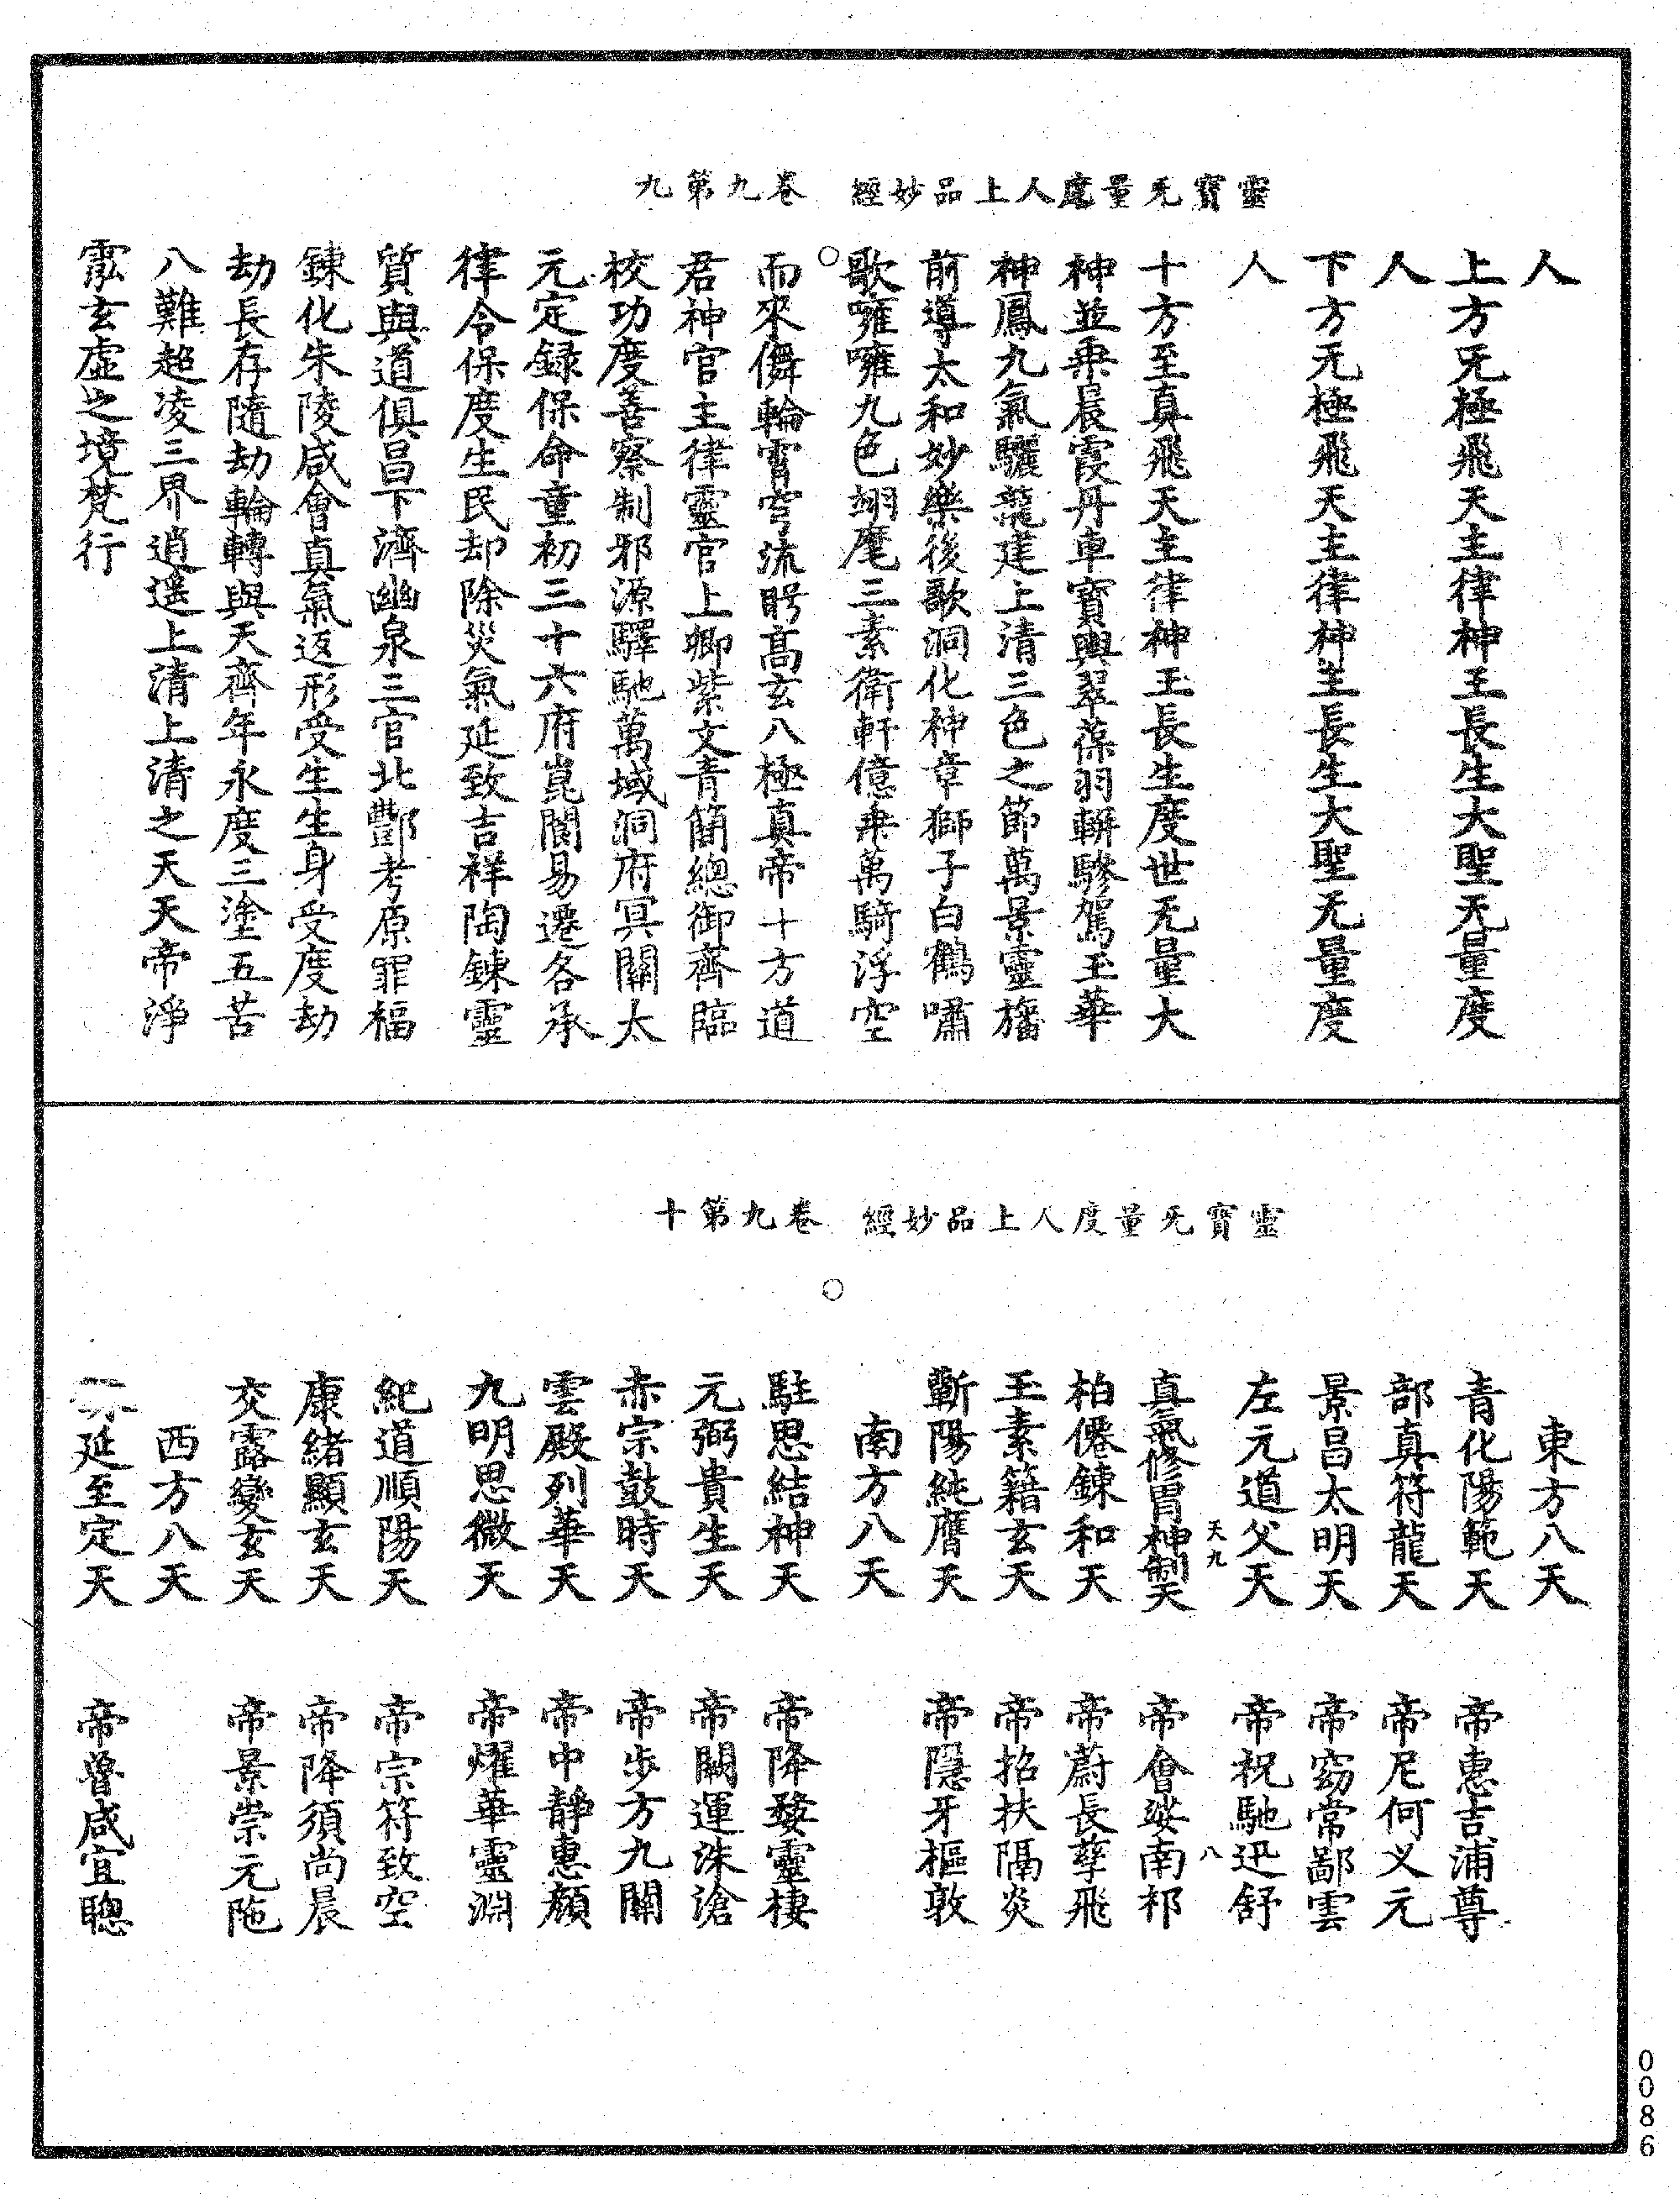 靈寶无量度人上品妙經　卷九第九
人
上方无極飛天主律神王長生大聖无量度
人
下方无極飛天主律神王長生大聖无量度
人
十方至真飛天主律神王長生度世无量大
神並乗晨霞丹車寳輿翠葆羽輧驂駕玉華
神鳳九氣驪龍建上清三色之節萬景靈旛
前導太和妙樂後歌洞化神章獅子白鶴嘯
歌嗈嗈九色翊麾三素衛軒億乗萬騎浮空
而來儛輪霄穹流眄髙玄八極真帝十方道
君神官主律靈官上卿紫文青簡總御齊臨
校功度善察制邪源驛馳萬域洞府冥關太
元定録保命童初三十六府崑閬易遷各承
律令保度生民却除災氣延致吉祥陶鍊靈
質與道俱昌下濟幽泉三官北酆考原罪福
鍊化朱陵咸會真氣返形受生生身受度劫
劫長存隨劫輪轉與天齊年永度三塗五苦
八難超凌三界逍遥上清上清之天天帝淨
霐玄虛之境梵行
靈寶无量度人上品妙經　卷九第十
東方八天
青化陽範天　帝惠吉浦尊
部真符龍天　帝尼何义元
景昌太明天　帝窈常鄙雲
左元道父天　帝祝馳迅舒
天九　八
真氣修胃神制天　帝會娑南祁
柏僊鍊和天　帝蔚長孽飛
玉素籍玄天　帝招扶隔炎
斬陽純膺天　帝隱牙樞敦
南方八天
駐思結神天　帝降婺靈棲
元弼貴生天　帝闕運洙滄
赤宗鼓時天　帝步方九關
雲殿列華天　帝中靜惠顏
九明思微天　帝燿華靈淵
紀道順陽天　帝宗符致空
康緒顯玄天　帝降須尚晨
交露變玄天　帝景崇元陁
西方八天
延至定天　帝曾咸宜聰
0086